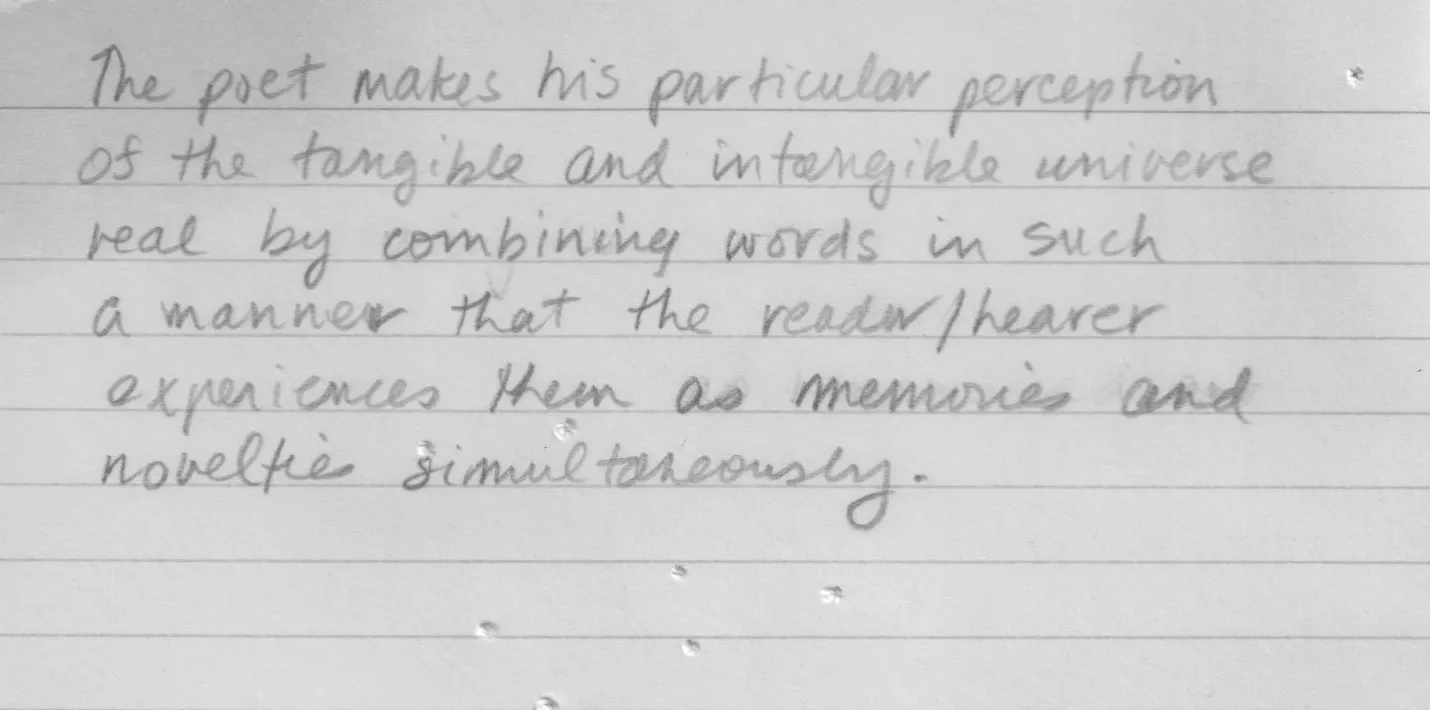 The poet makes his particular perception
of the tangible and intangible universe
real by combining words in such
a manner that the reader/hearer
experiences them as memories and
novelties simultaneously.